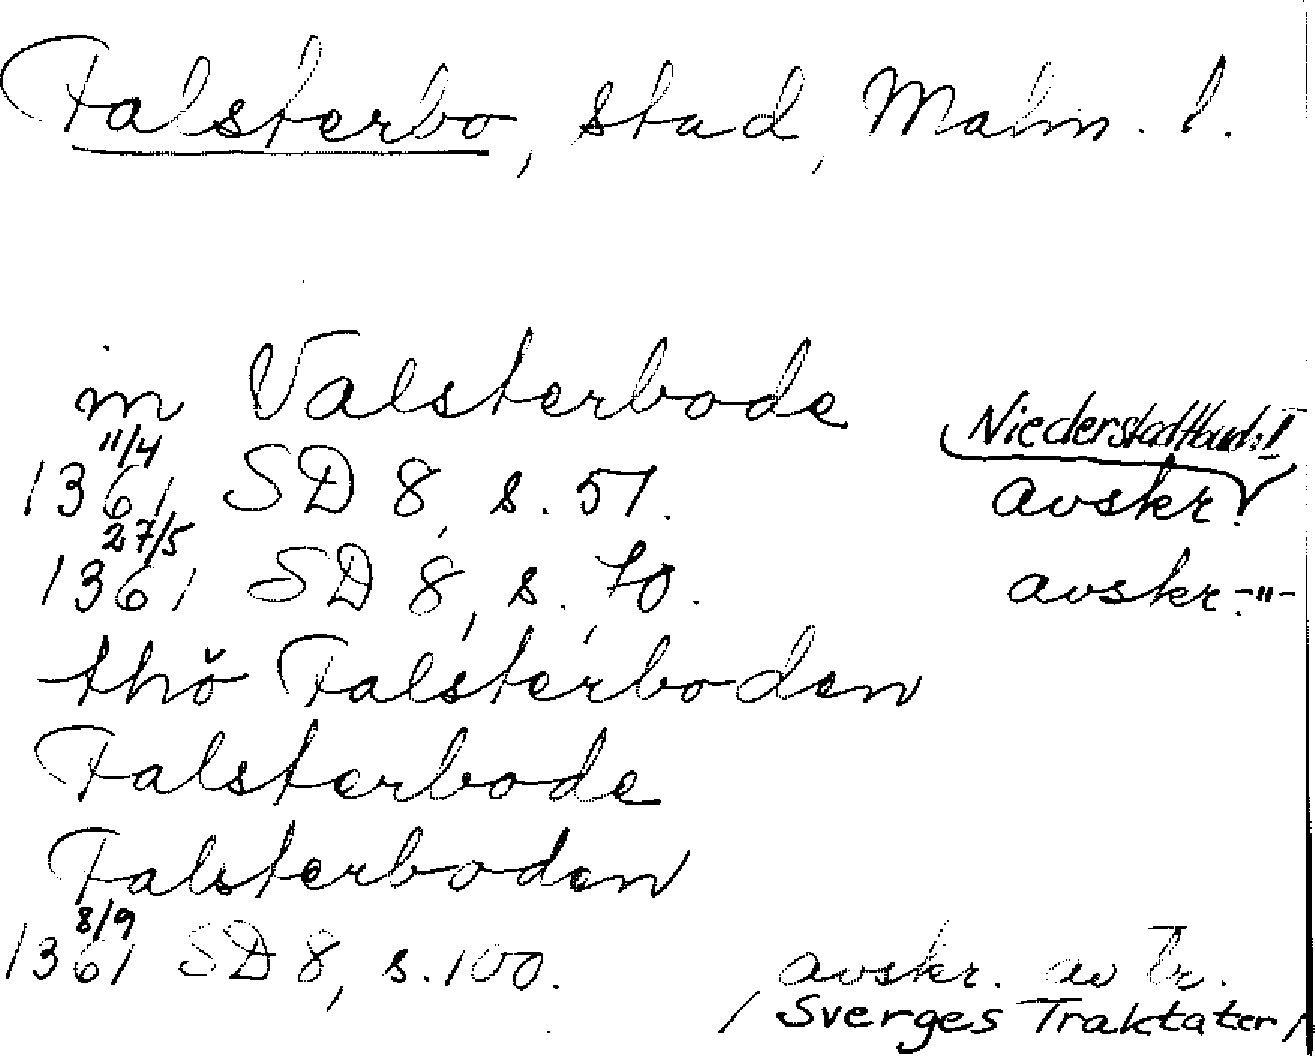 Falsterbo, stad, Malm. l.
in Valsterbode
Niederstadtbuch I
1361 11/4 SD 8, s. 51. avskr.
1361 27/5 SD 8, s. 70. avskr. -"-
thŏ Falsterboden
Falsterbode
Falsterboden
1361 8/9 SD 8, s. 100. avskr. av tr.
/Sverges Traktater/